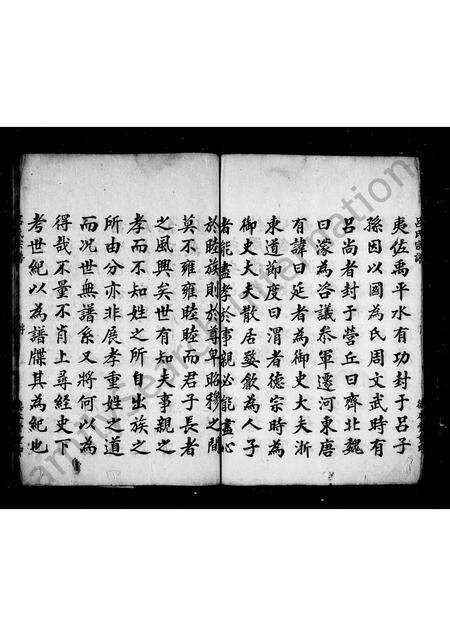 夷佐禹平水有功封于呂子
孫因以國為氏周文武時有
呂尚者封于營丘曰齊北魏
曰濛為咨議參軍遷河東唐
有諱曰延者為御史大夫浙
東道節度曰渭者德宗時為
御史大夫散居婺歙為人子
者能盡孝於事親必能盡心
於睦族則於尊卑昭穆之間
莫不雍雍睦睦而君子長者
之風興矣世有知夫事親之
孝而不知姓之所自出族之
所由分亦非展孝重姓之道
而况世無譜系又將何以為
得哉不量不肖上尋經史下
考世紀以為譜牒其為紀也